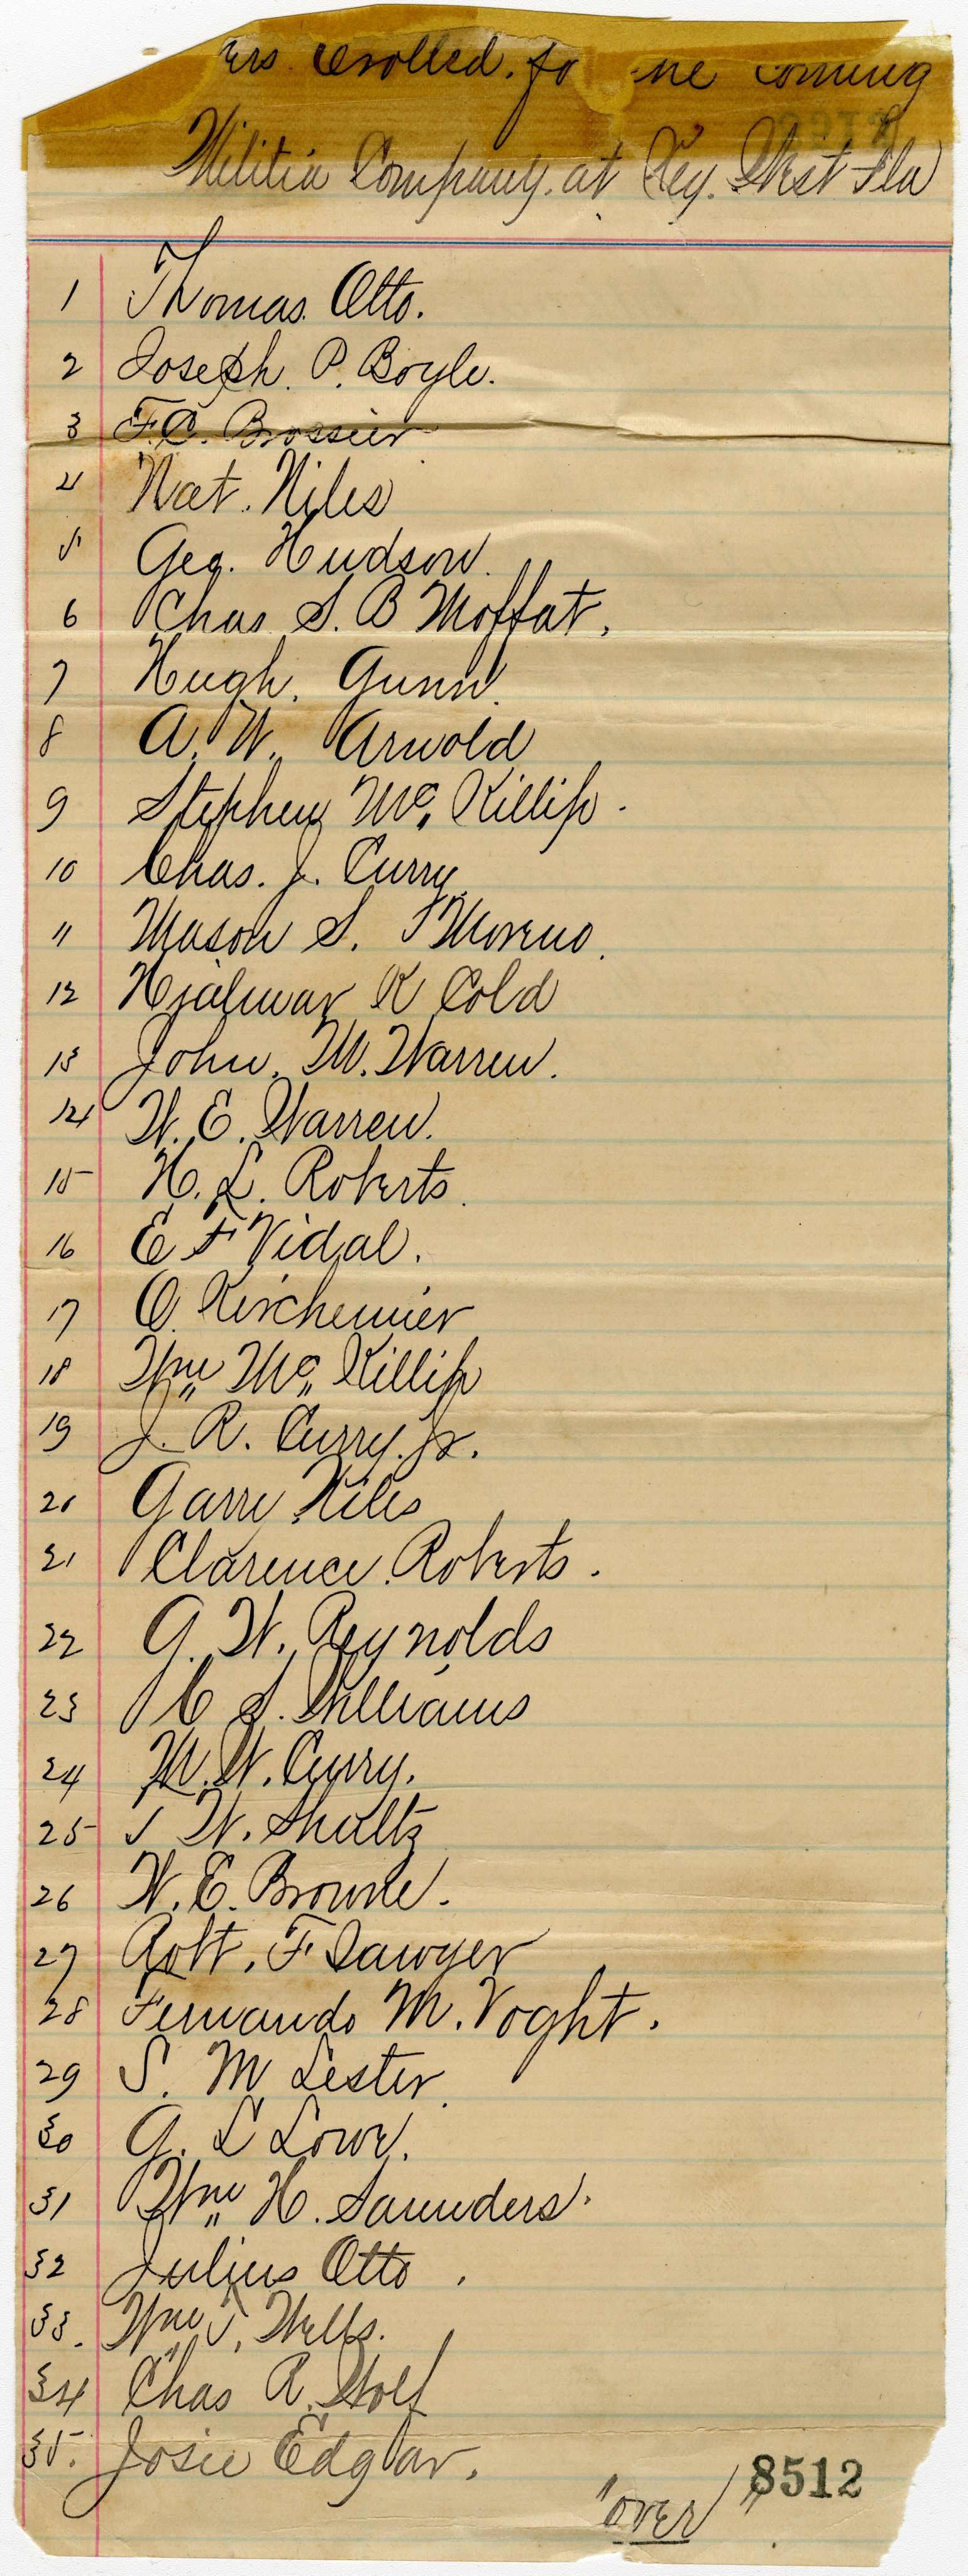 ers enrolled. for the coming
Militia Company. at Key. West Fla
1 Thomas. Otto.
2 Joseph. P. Boyle.
3 F.C. Brossier
4 Nat. Niles
5 Geo. Hudson.
6 Chas. S. B Moffat.
7 Hugh. Gunn.
8 A. W. Arnold
9 Stephen Mc. Killip.
10 Chas. J. Curry.
11 Mason S. Moreno.
12 Hjalmar K Cold
13 John. M. Warren.
14 W. E. Warren.
15 H. L. Roberts.
16 E F Vidal.
17 O. Kirchemier
18 Wm Mc. Killip
19 J. R. Curry. Jr.
20 Garry Niles
21 Clarence. Roberts.
22 G. W. Reynolds
23 C S. Williams
24 M. W. Curry.
25 J W. Shultz
26 W. E. Browne.
27 Robt. F Sawyer
28 Fernando M. Voght.
29 S. M Lester.
30 G. L Lowe.
31 Wm H. Saunders.
32 Julius Otto.
33. Wm J. Wells.
34 Chas R. Wolf
35. Josie Edgar.
8512
"over"